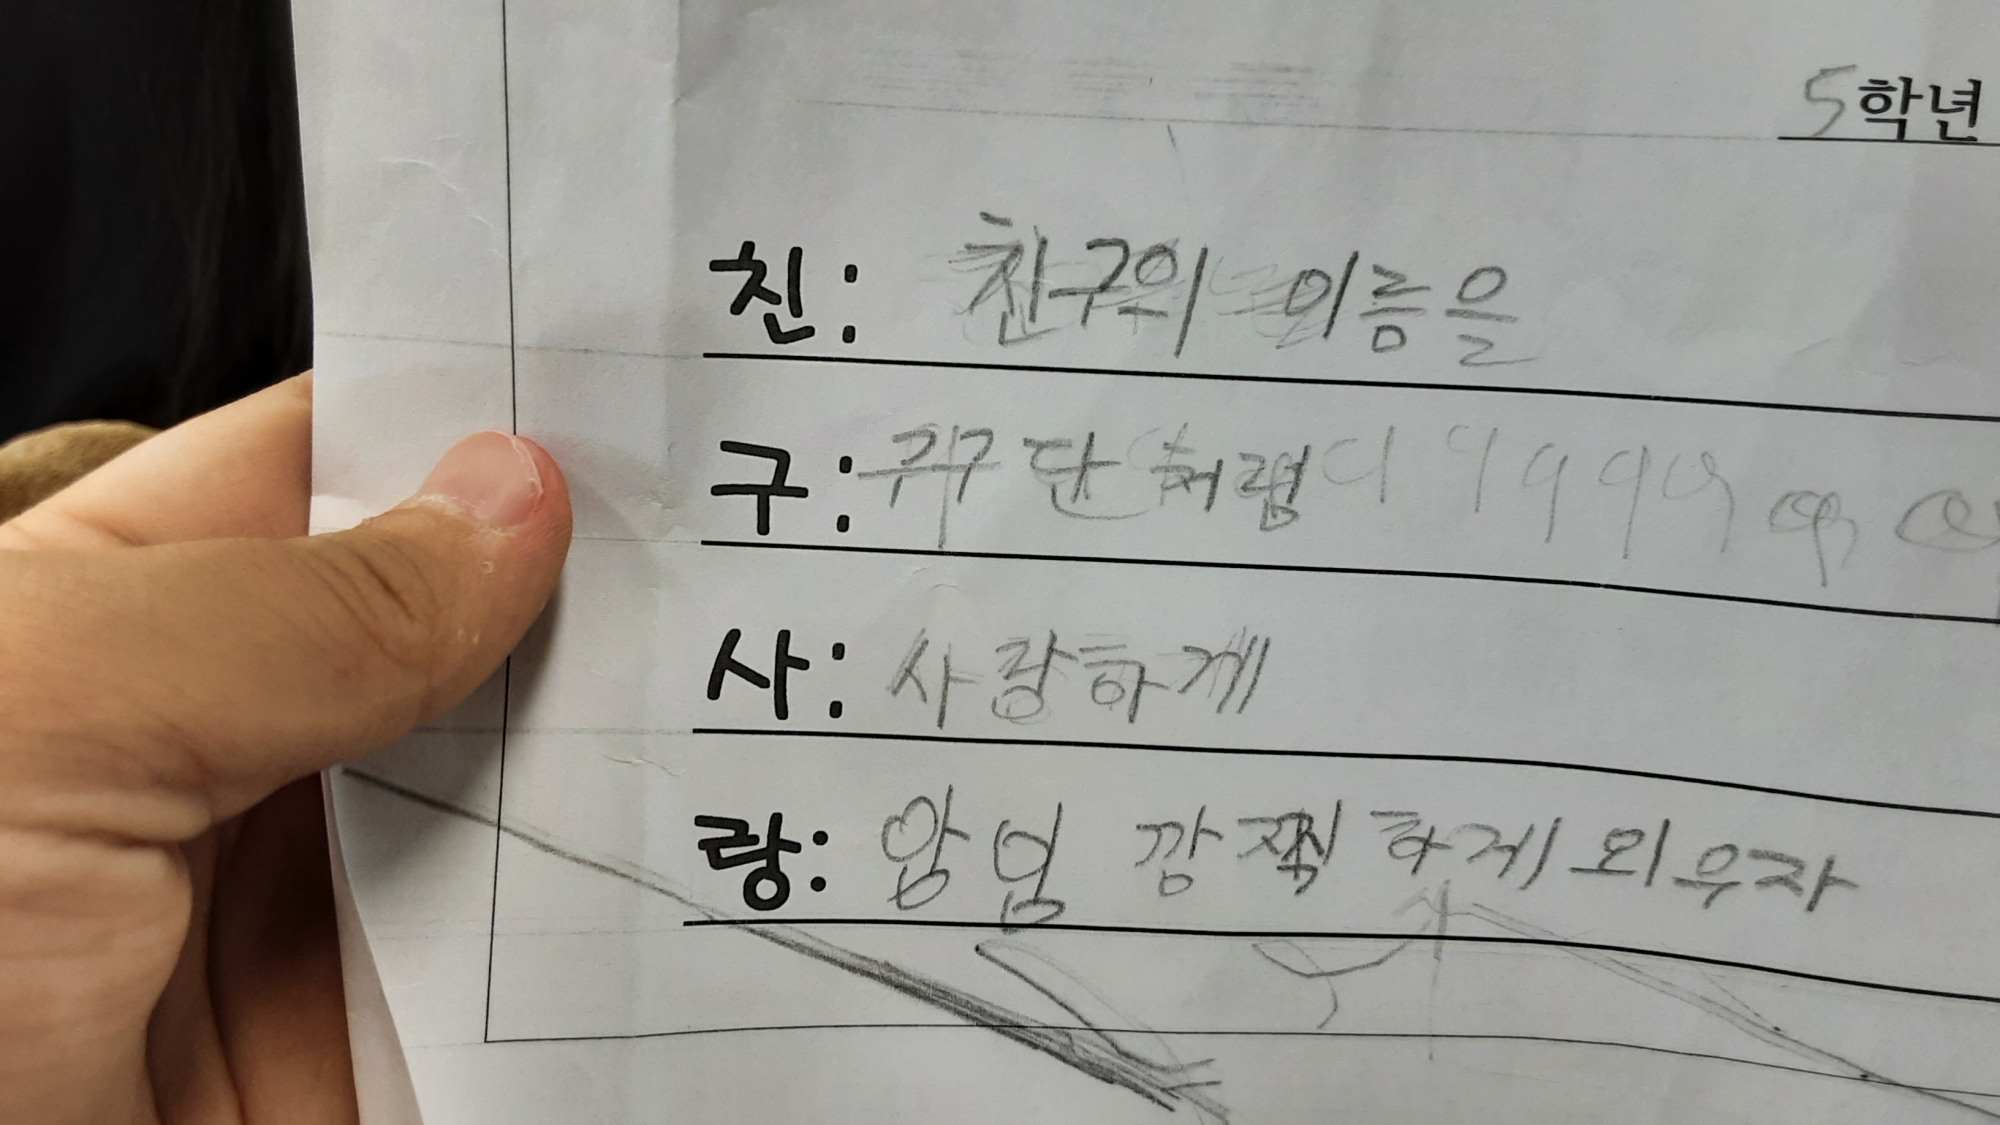 5학년
친: 친구의 이름을
구: 구구단처럼
사: 사랑하게
랑: 깜찍하게 외우자